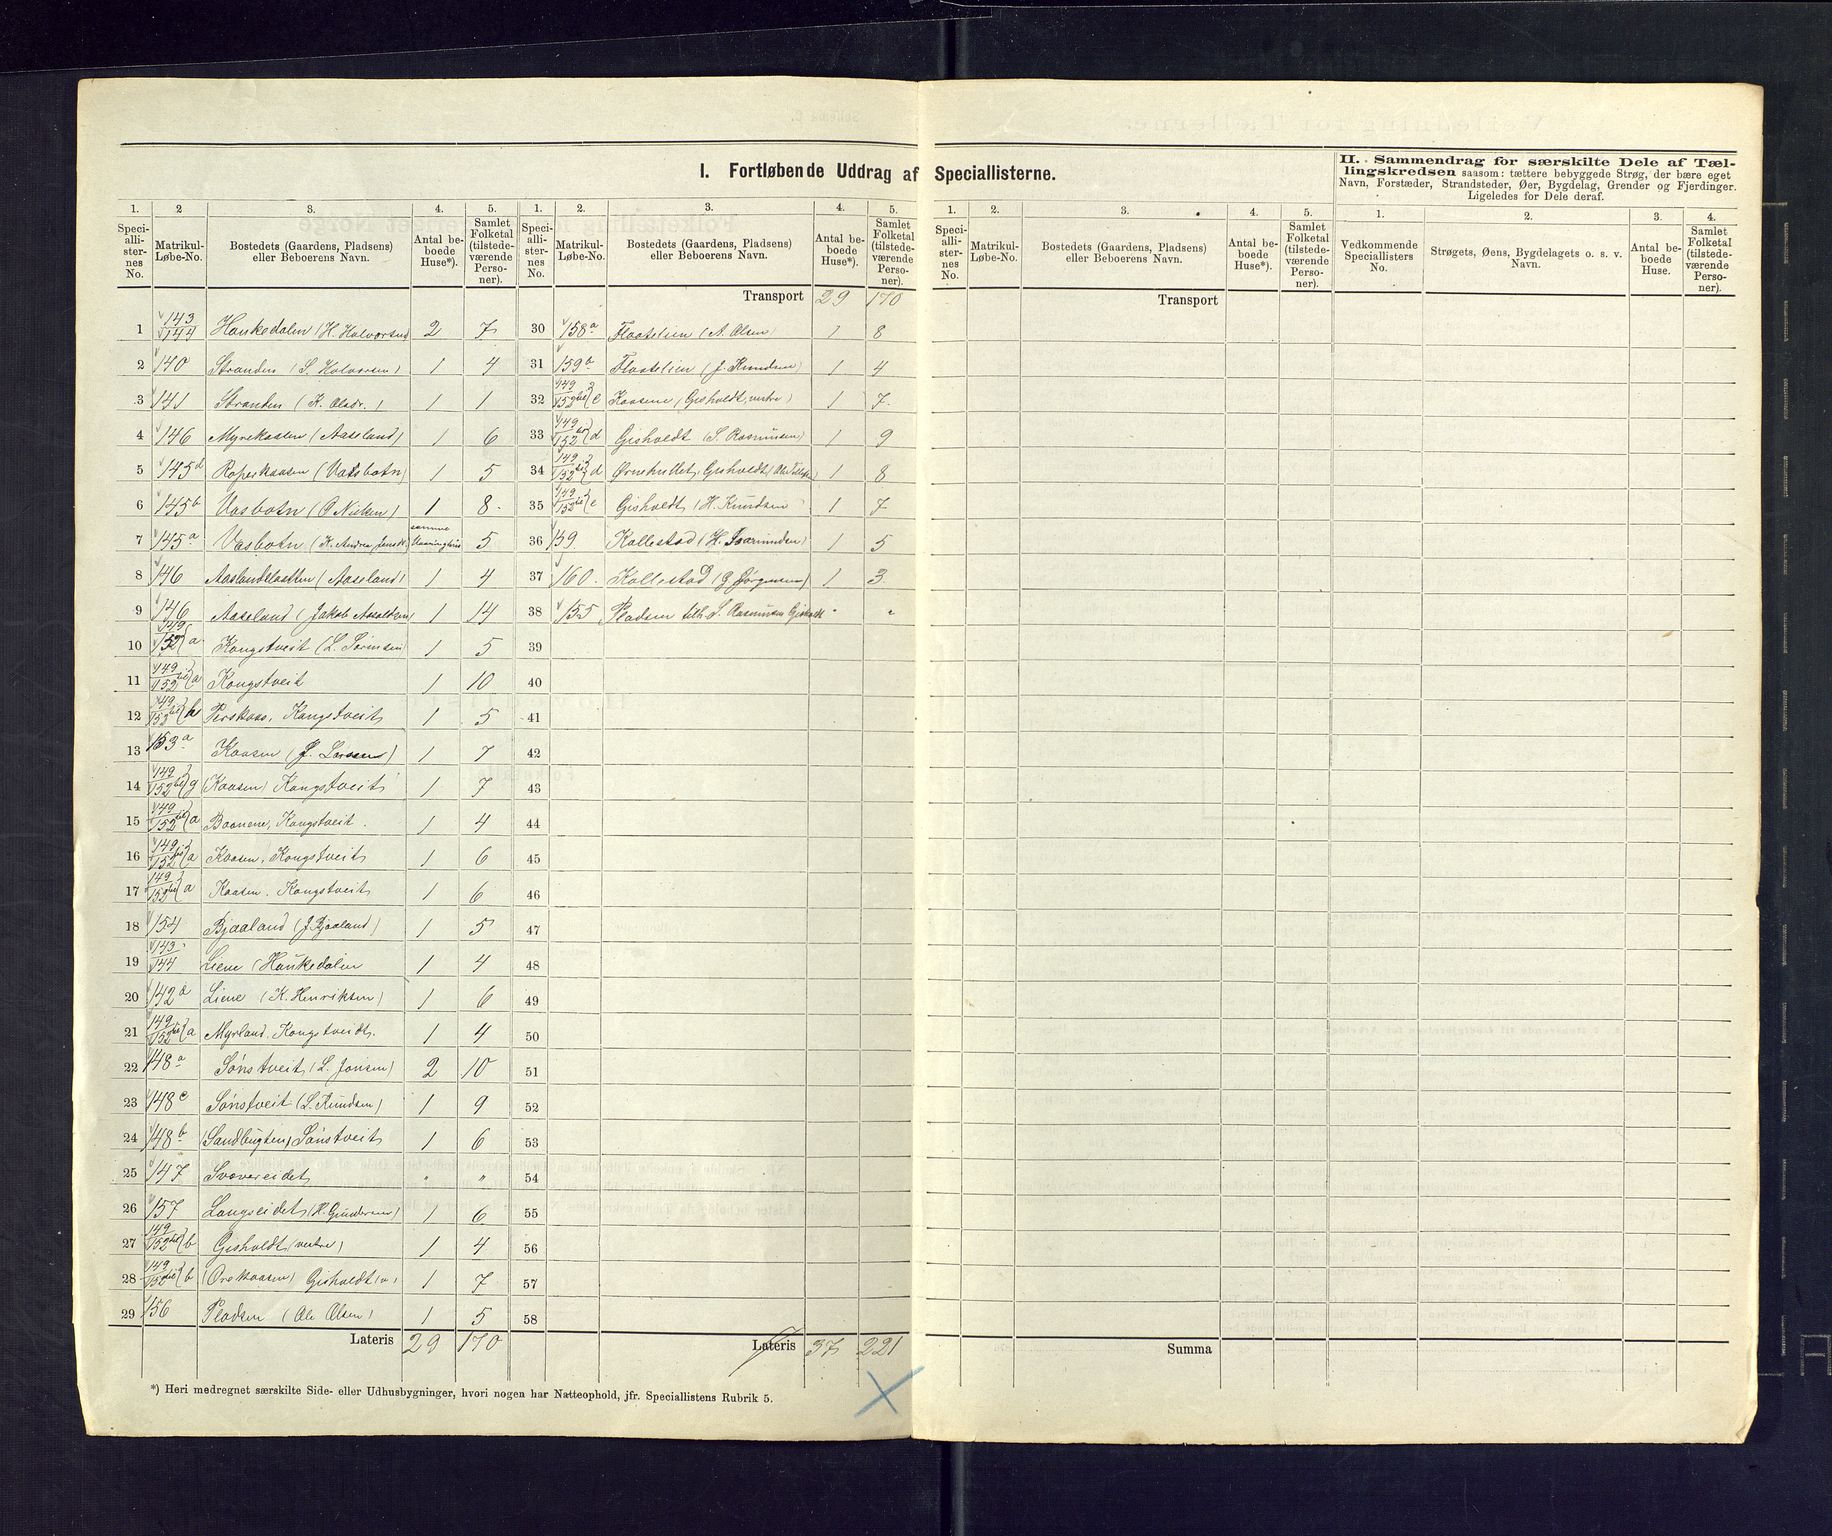 I. Fortløbende Uddrag af Speciallisterne.
II. Sammendrag for særskilte Dele af Tæl-
lingskredsen saasom: tættere bebyggede Strøg, der bære eget
Navn, Forstæder, Strandsteder, Øer, Bygdelag, Grender og Fjerdinger.
Ligeledes for Dele deraf.
1. 2 3. 4. 5. 1. 2. 3. 4. 5. 1. 2. 3. 4. 5. 1. 2. 3. 4.
Speci-allister-nes No. Matrikul-Løbe-No. Bostedets (Gaardens, Pladsens) eller Beboerens Navn. Antal be-boede Huse*). Samlet Folketal (tilstede-værende Perso-ner).
Speci-allister-nes No. Matrikul-Løbe-No. Bostedets (Gaardens, Pladsens) eller Beboerens Navn. Antal be-boede Huse*). Samlet Folketal (tilstede-værende Perso-ner).
Speci-allister-nes No. Matrikul-Løbe-No. Bostedets (Gaardens, Pladsens) eller Beboerens Navn. Antal be-boede Huse*). Samlet Folketal (tilstede-værende Perso-ner).
Vedkommende Speciallisters No. Strøgets, Øens, Bygdelagets o. s. v. Navn. Antal be-boede Huse. Samlet Folketal (tilstede-værende Perso-ner).
1 143/144 Haukedalen (H. Halvorsen) 2 7
2 140 Stranden (S. Halvorsen) 1 4
3 141 Stranden (K. Olsdr.) 1 1
4 146 Myrekaasen (Aaseland) 1 6
5 145d Roperkaasen (Vasbotn) 1 5
6 145b Vasbotn (O. Nielsen) 1 8
7 145a Vasbotn (K. Andrea Jensdt.) samme Vaaningshus 5
8 146 Aaslandslaatten (Aaseland) 1 4
9 146 Aaseland (Jakob) 1 14
10 149/152 a Kongstveit (L. Sørensen) 1 5
11 149/152 a Kongstveit 1 10
12 149/152 h Perskaas, Kongstveit 1 5
13 153a Kaasen (J. Larsen) 1 7
14 149/152 g (Kaasen) Kongstveit 1 7
15 149/152 a Baanene, Kongstveit. 1 4
16 149/152 a Kaasen, Kongstveit 1 6
17 149/152 a Kaasen. Kongstveit 1 6
18 154 Bjaaland (J. Bjaaland) 1 5
19 143/144 Liene (Haukedalen 1 4
20 142a Liene (K. Henriksen) 1 6
21 149/152 a Myrland, Kongstveidt. 1 4
22 148a Sønstveit (L. Jonsen) 2 10
23 148c Sønstveit (L. Knudsen) 1 9
24 148b (Sandbugten) Sønstveit 1 6
25 147 Svavereidet " "
26 157 Langseidet (H. Gundersen) 1 6
27 149/152 b Gisholdt (vestre) 1 4
28 149/152 b (Orekaasen) Gisholdt (v) 1 7
29 156 Pladsen (Ole Olsen) 1 5
Lateris 29 170
Transport 29 170
30 158a Flaatelien (A. Olsen) 1 8
31 159b Flaatelien (J. Knudsen) 1 4
32 149/152 c Kaasene (Gisholdt, vestre) 1 7
33 149/152 d Gisholdt (S. Rasmusen) 1 9
34 149/152 d Ørnehullet, Gisholdt (Ole) 1 8
35 149/152 c Gisholdt (H. Knudsen 1 7
36 159 Kallestad (H.) 1 5
37 160. Kallestad (G. Jørgensen) 1 3
38 155 Pladsen tilh. S. Rasmusen Gisholdt " "
39
40
41
42
43
44
45
46
47
48
49
50
51
52
53
54
55
56
57
58
Lateris 37 221
Transport
Summa
*) Heri medregnet særskilte Side- eller Udhusbygninger, hvori nogen har Natteophold, jfr. Speciallistens Rubrik 5.